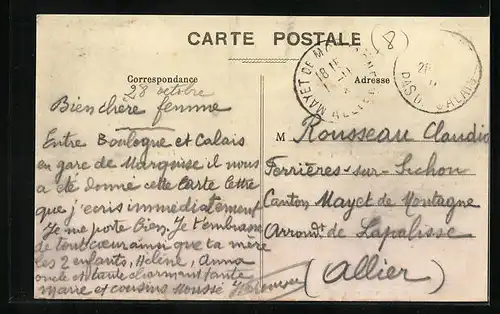 CARTE POSTALE
(8)
Correspondance
Adresse
28 octobre
Bien chère femme
Entre Boulogne et Calais
en gare de Marquise il nous
a été donné cette Carte lettre
que j'ecris immédiatement
Je me porte bien, Je t'embrasse
de tout cœur ainsi que ta mère
les 2 enfants, Hélène, Anna
oncle et tante charmant tante
marie et cousins Moussé
M Rousseau Claudis
Ferrières-sur-Sichon
Canton Mayet de Montagne
Arrondt. de Lapalisse
(Allier)
MAYET DE
ALLIER
18
28
PAS D CALAIS